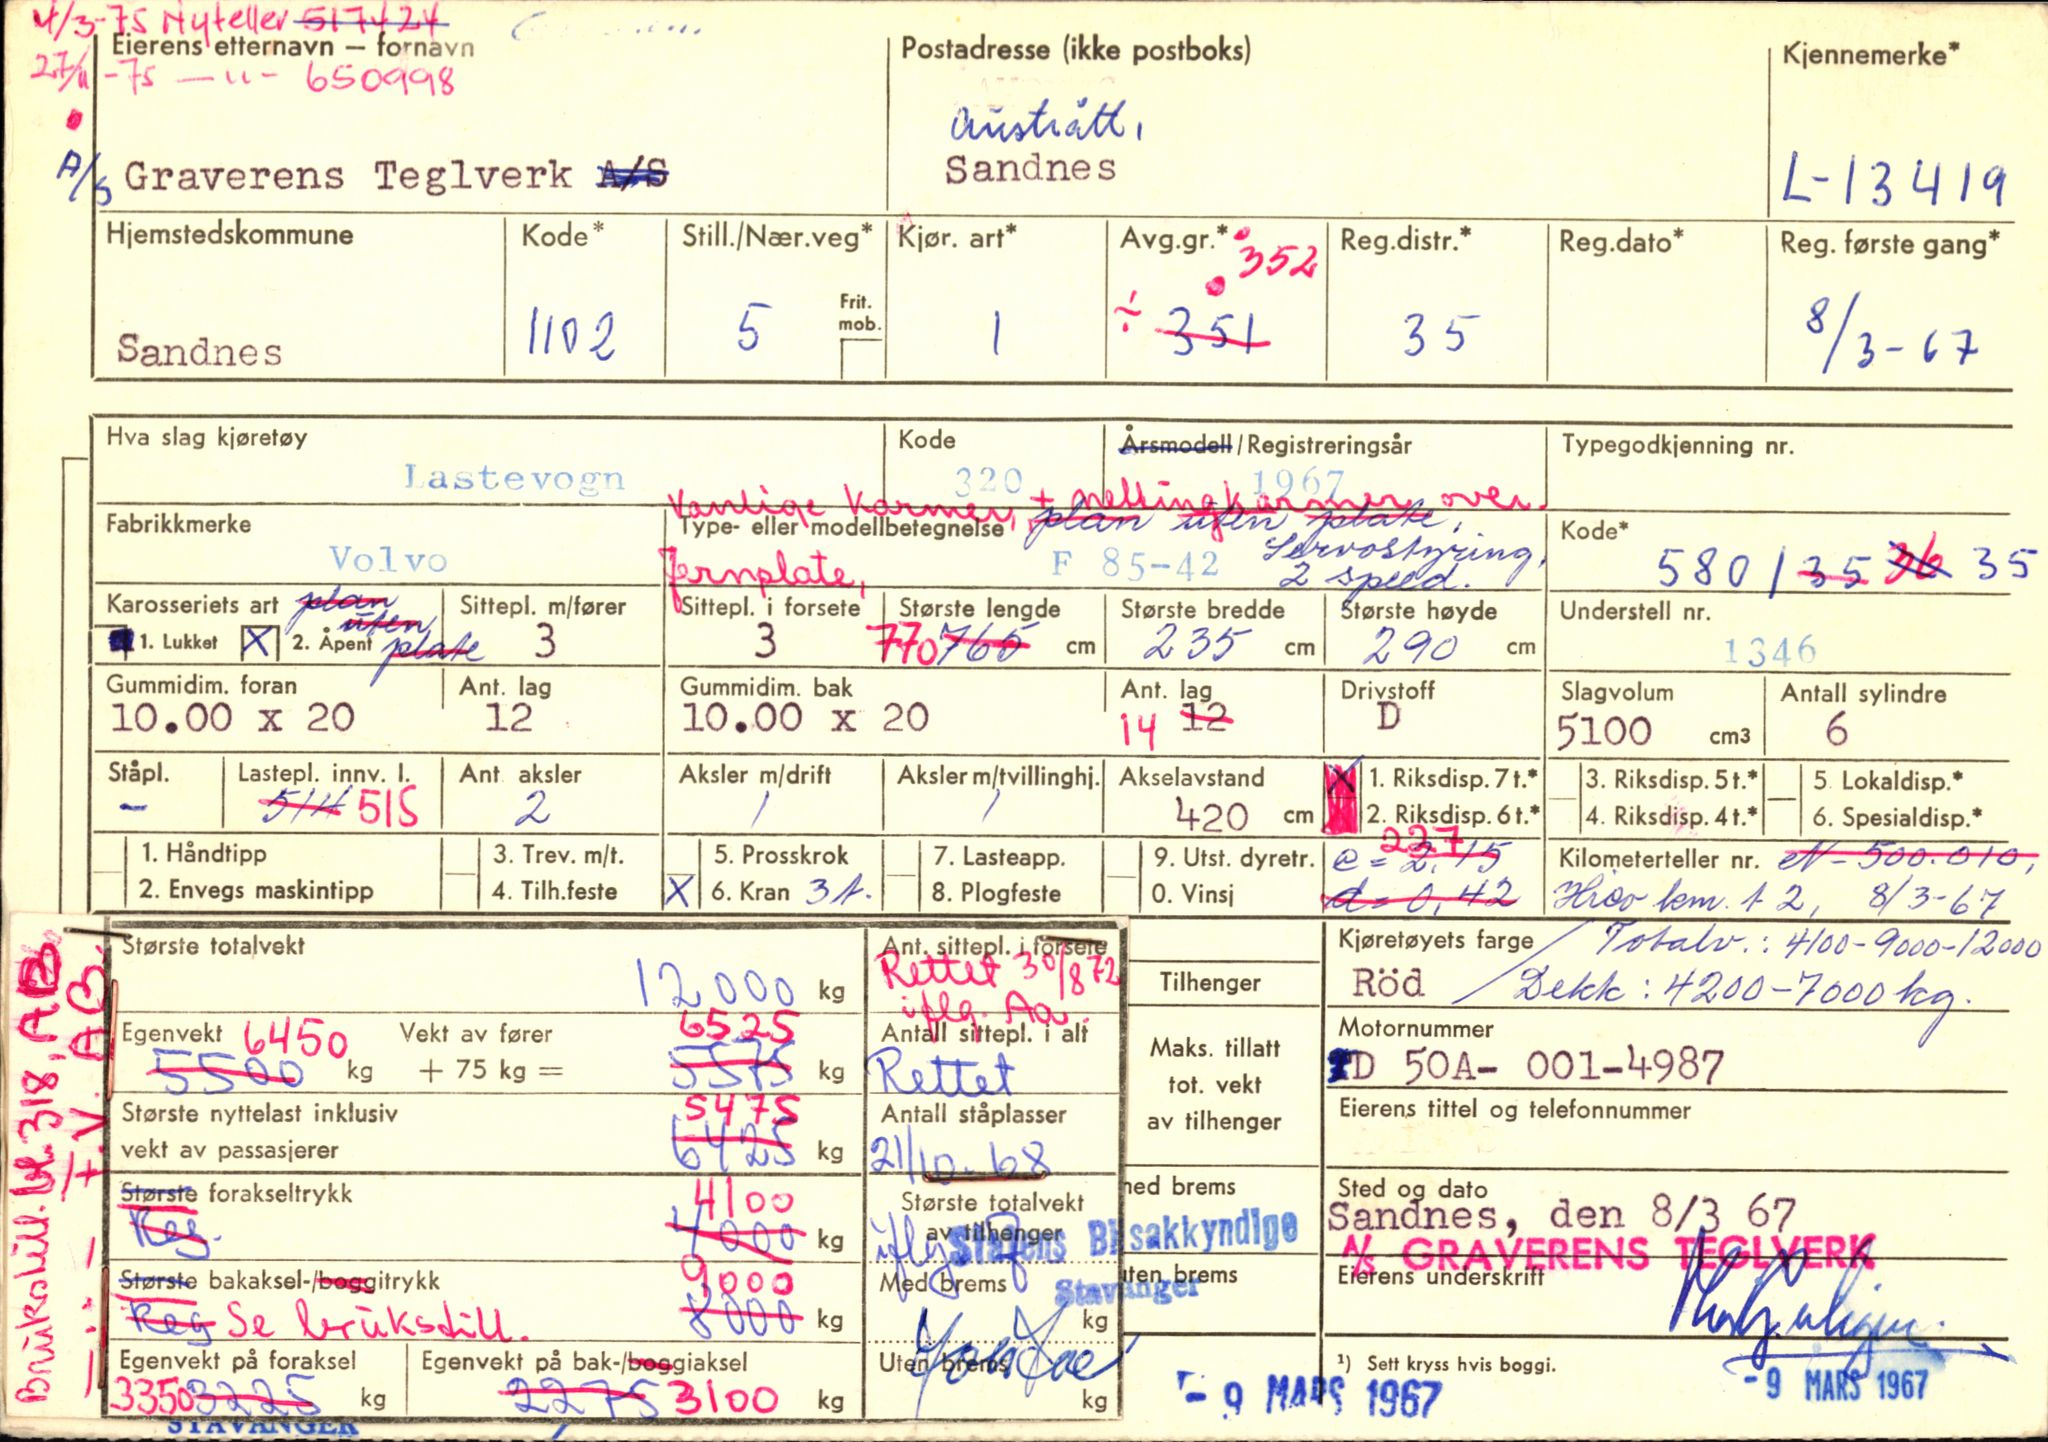 4/3-75 Ny teller 517424
Eierens etternavn – fornavn
27/11-75 —"— 650998
A/S Graverens Teglverk A/S
Postadresse (ikke postboks)
Austrått,
Sandnes
Kjennemerke*
L-13419
Hjemstedskommune
Sandnes
Kode*
1102
Still./Nær.veg*
5
Frit.
mob.
Kjør. art*
1
Avg.gr.*
352
÷ 351
Reg.distr.*
35
Reg.dato*
Reg. første gang*
8/3-67
Hva slag kjøretøy
Lastevogn
Kode
320
Årsmodell/Registreringsår
1967
Typegodkjenning nr.
Vanlige karmer, + nettingkarmer over
Jernplate,
Fabrikkmerke
Volvo
Type- eller modellbetegnelse
plan uten plate,
F 85-42
Servostyring,
2 speed.
Kode*
580 / 35 36 35
Karosseriets art
plan
uten
plate
1. Lukket
X 2. Åpent
Sittepl. m/fører
3
Sittepl. i forsete
3
Største lengde
770 765 cm
Største bredde
235 cm
Største høyde
290 cm
Understell nr.
1346
Gummidim. foran
10.00 x 20
Ant. lag
12
Gummidim. bak
10.00 x 20
Ant. lag
14 12
Drivstoff
D
Slagvolum
5100 cm3
Antall sylindre
6
Ståpl.
–
Lastepl. innv. l.
514 515
Ant aksler
2
Aksler m/drift
1
Aksler m/tvillinghj.
1
Akselavstand
420 cm
X 1. Riksdisp. 7 t.*
2. Riksdisp. 6 t.*
3. Riksdisp. 5 t.*
4. Riksdisp. 4 t.*
5. Lokaldisp.*
6. Spesialdisp.*
1. Håndtipp
2. Envegs maskintipp
3. Trev. m/t.
4. Tilh.feste
5. Prosskrok
X 6. Kran 3 t.
7. Lasteapp.
8. Plogfeste
9. Utst. dyretr.
0. Vinsj
227
e = 2,15
d = 0,42
Kilometerteller nr. N-500.010,
km. t 2, 8/3-67
Største totalvekt
12000 kg
Egenvekt 6450
5500 kg
Vekt av fører
+ 75 kg =
6525
5575 kg
Største nyttelast inklusiv
vekt av passasjerer
5475
6425 kg
Største forakseltrykk
Reg.
4100
4000 kg
Største bakaksel-/boggitrykk
Reg Se brukstill.
9000
8000 kg
Egenvekt på foraksel
3350 3225 kg
Egenvekt på bak-/boggiaksel
2275 3100
Ant. sittepl. i forsete
Rettet 30/8 72
iflg. Aa.
Antall sittepl. i alt
Rettet
Antall ståplasser
21/10-68
Største totalvekt
av tilhenger
iflg
Statens Bilsakkyndige
Stavanger
Med brems
kg
Uten brems
kg
Tilhenger
Maks. tillatt
tot. vekt
av tilhenger
med brems
uten brems
Brukstill. bl. 318, AB
T.V. AB.
Kjøretøyets farge
Röd
Totalv.: 4100-9000-12000
Dekk: 4200-7000 kg.
Motornummer
TD 50A- 001-4987
Eierens tittel og telefonnummer
Sted og dato
Sandnes, den 8/3 67
A/S GRAVERENS TEGLVERK
Eierens underskrift
¹) Sett kryss hvis boggi.
- 9 MARS 1967
- 9 MARS 1967
STAVANGER